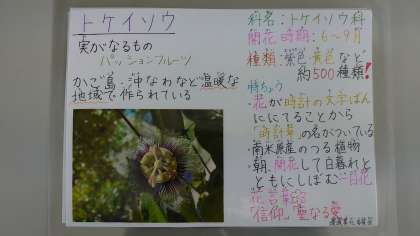 トケイソウ
実がなるもの
パッションフルーツ
かご島・沖なわなど温暖な
地域で作られている
科名：トケイソウ科
開花時期：6〜9月
種類：紫色 黄色など
約500種類！
特ちょう
・花が時計の文字ばん
ににてることから
「時計草」の名がついている
・南米原産のつる植物
・朝、開花して日暮れと
ともにしぼむ一日花
花言葉
「信仰」「聖なる愛